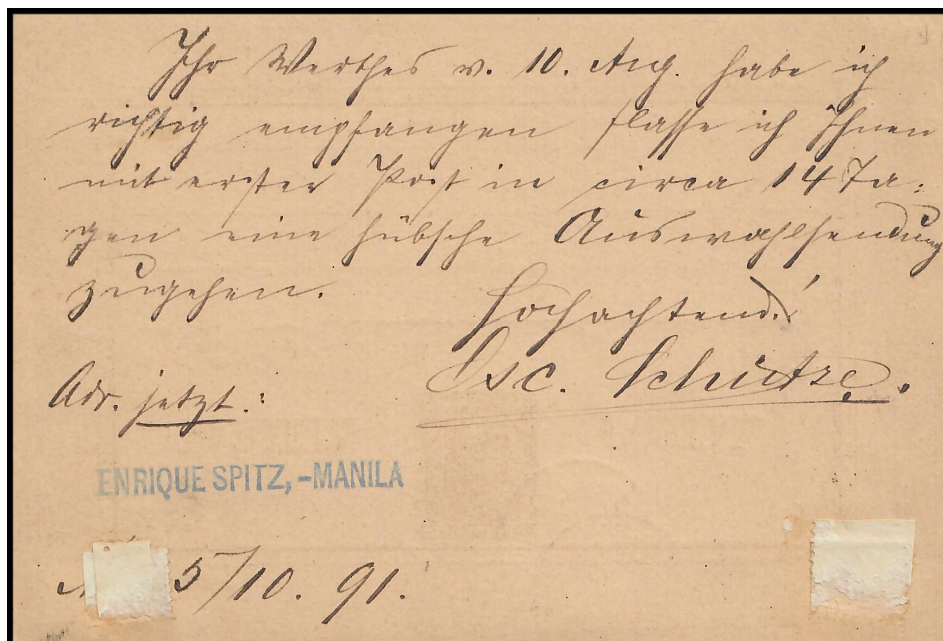 Ihr Werthes v. 10. Aug. habe ich
richtig empfangen & lasse ich Ihnen
mit erster Post in circa 14 Ta:
gen eine hübsche Auswahlsendung
zugehen.
Hochachtend!
Osc. Schütze.
Adr. jetzt.:
ENRIQUE SPITZ,-MANILA
5/10. 91.